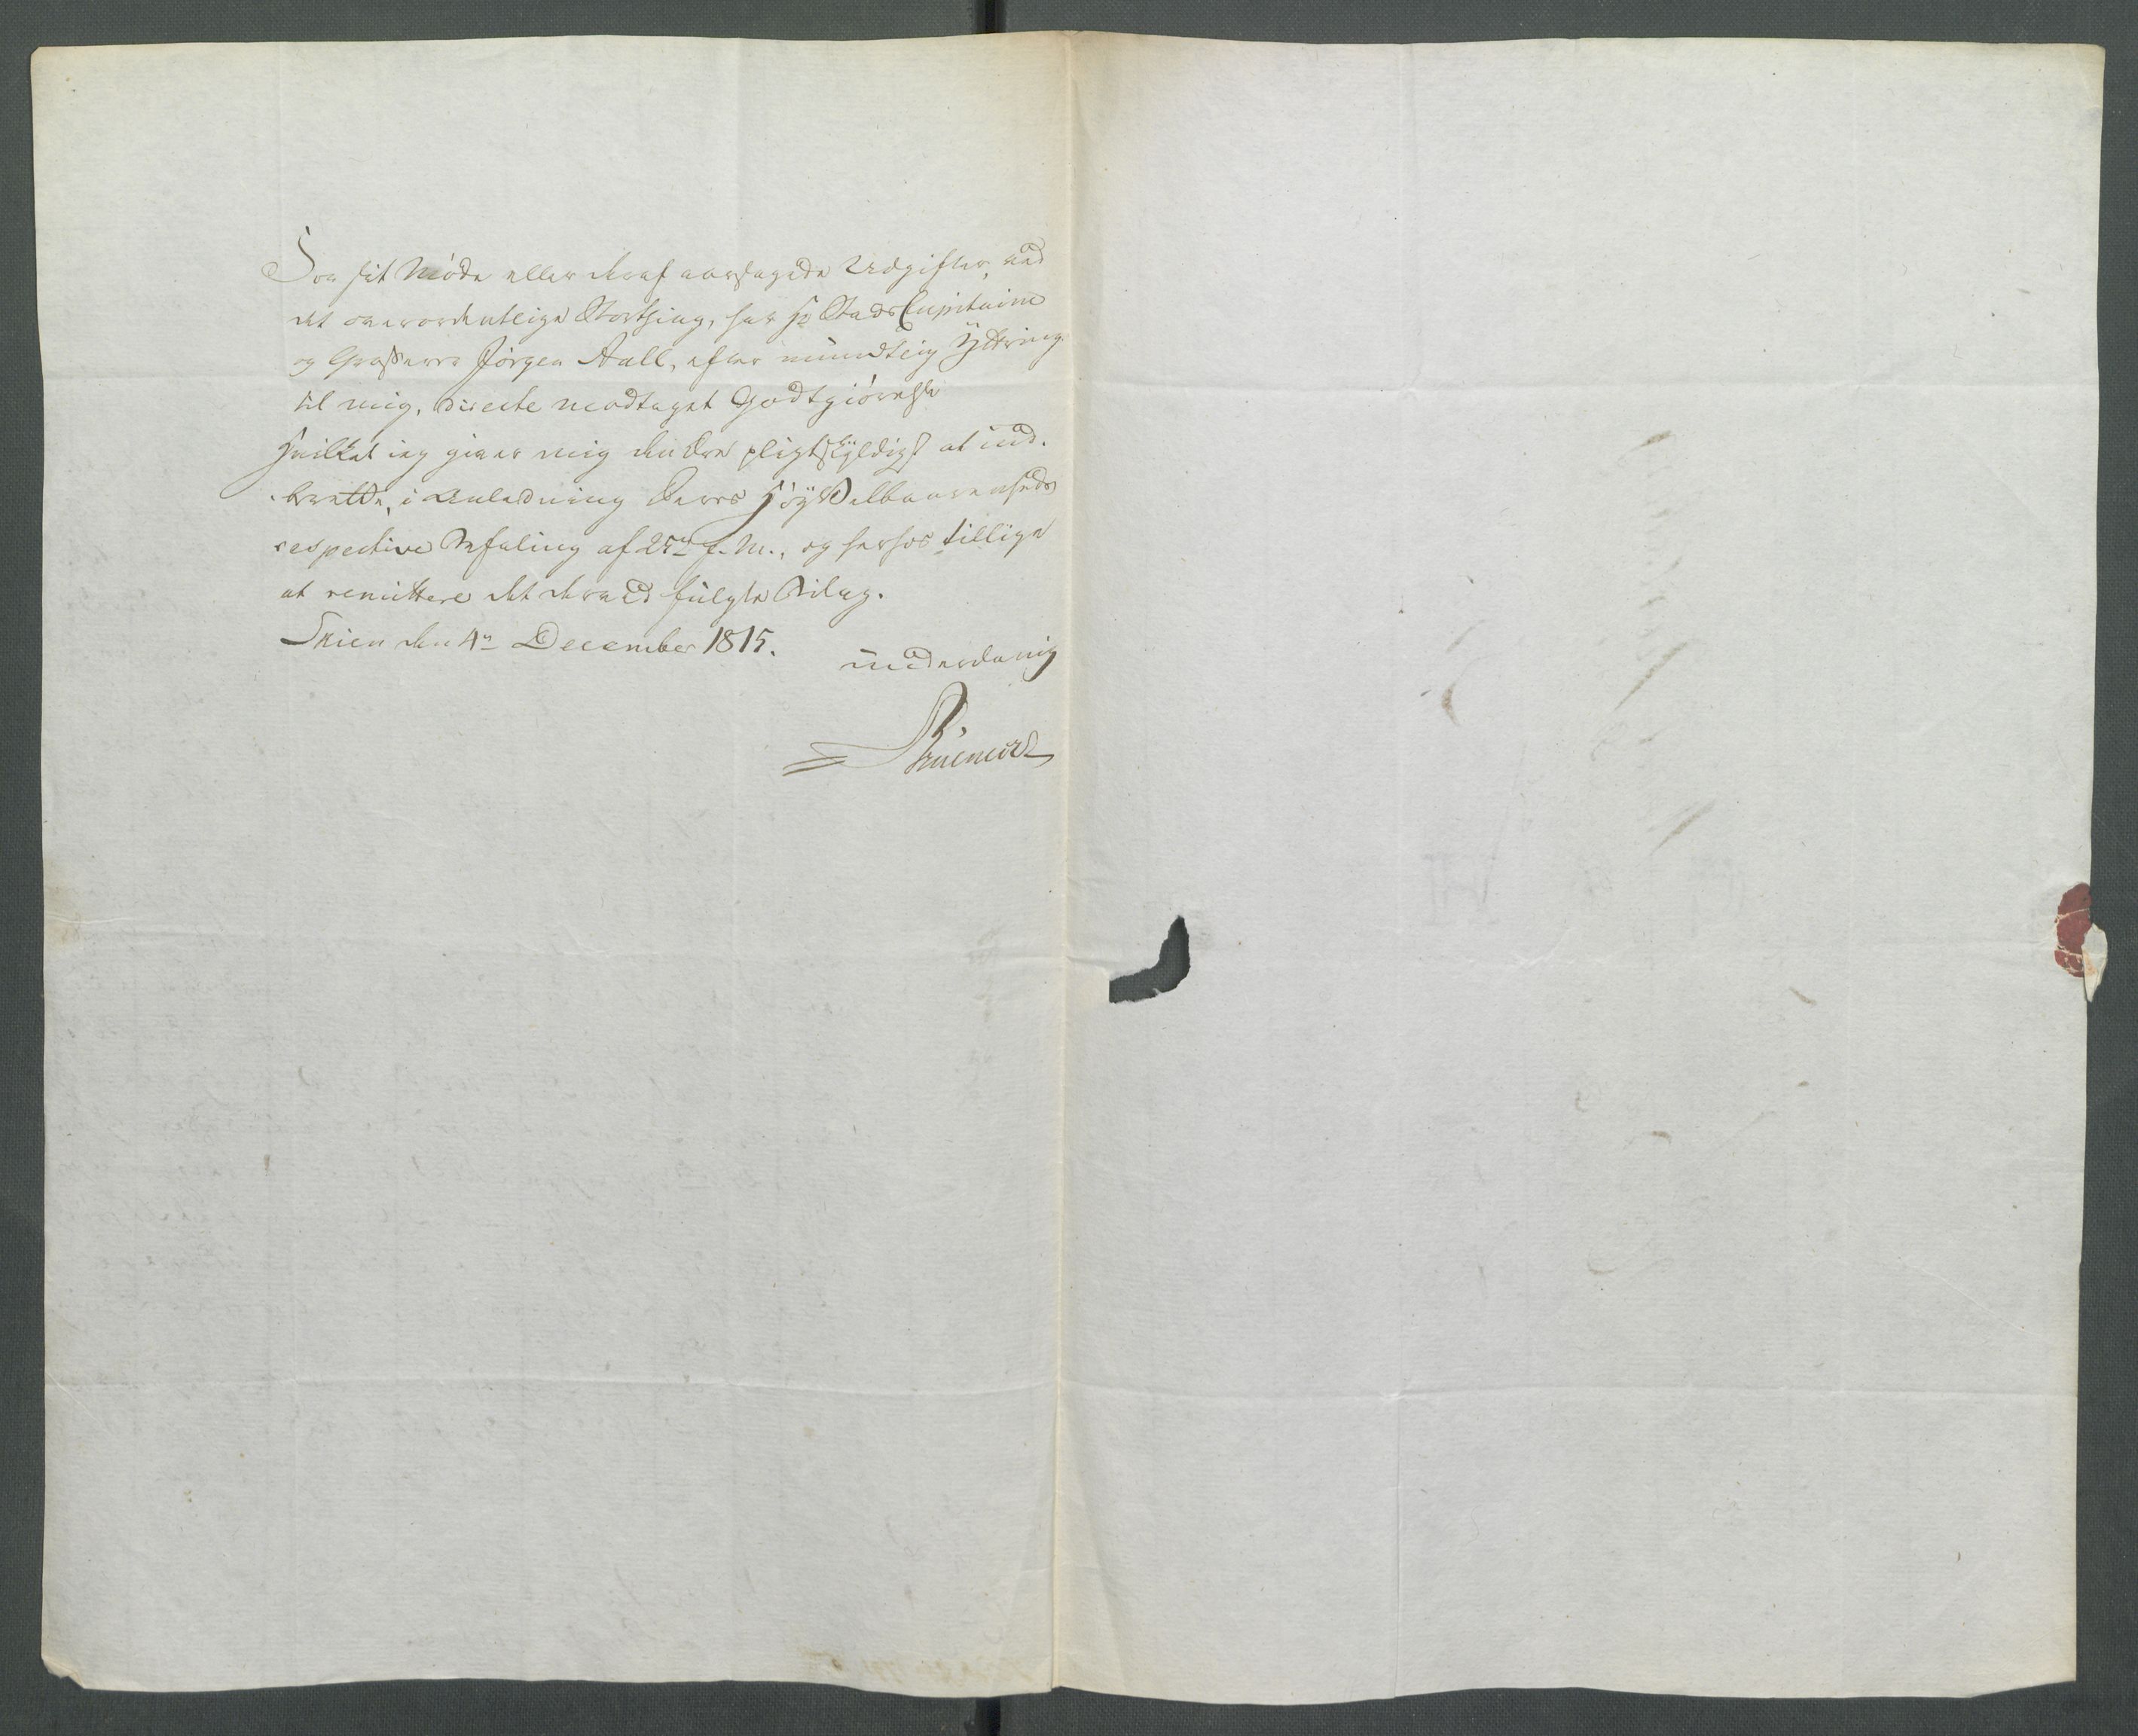 For sit Møde eller deraf aarsagede Udgifter, ved
det overordentlige Storthing, har Hr StadsCapitaine
og Grosserer Jørgen Aall, efter mundtlig Yttring
til mig, directe modtaget Godtgiørelse
hvilket ieg giver mig den Ære pligtskyldigst at ind-
-berette, i Anledning Deres HøyVelbaarenheds
respective Befaling af 25de f. M., og herhos tillige
at remittere det derved fulgte Bilag.
Skien den 4de December 1815.
underdanig